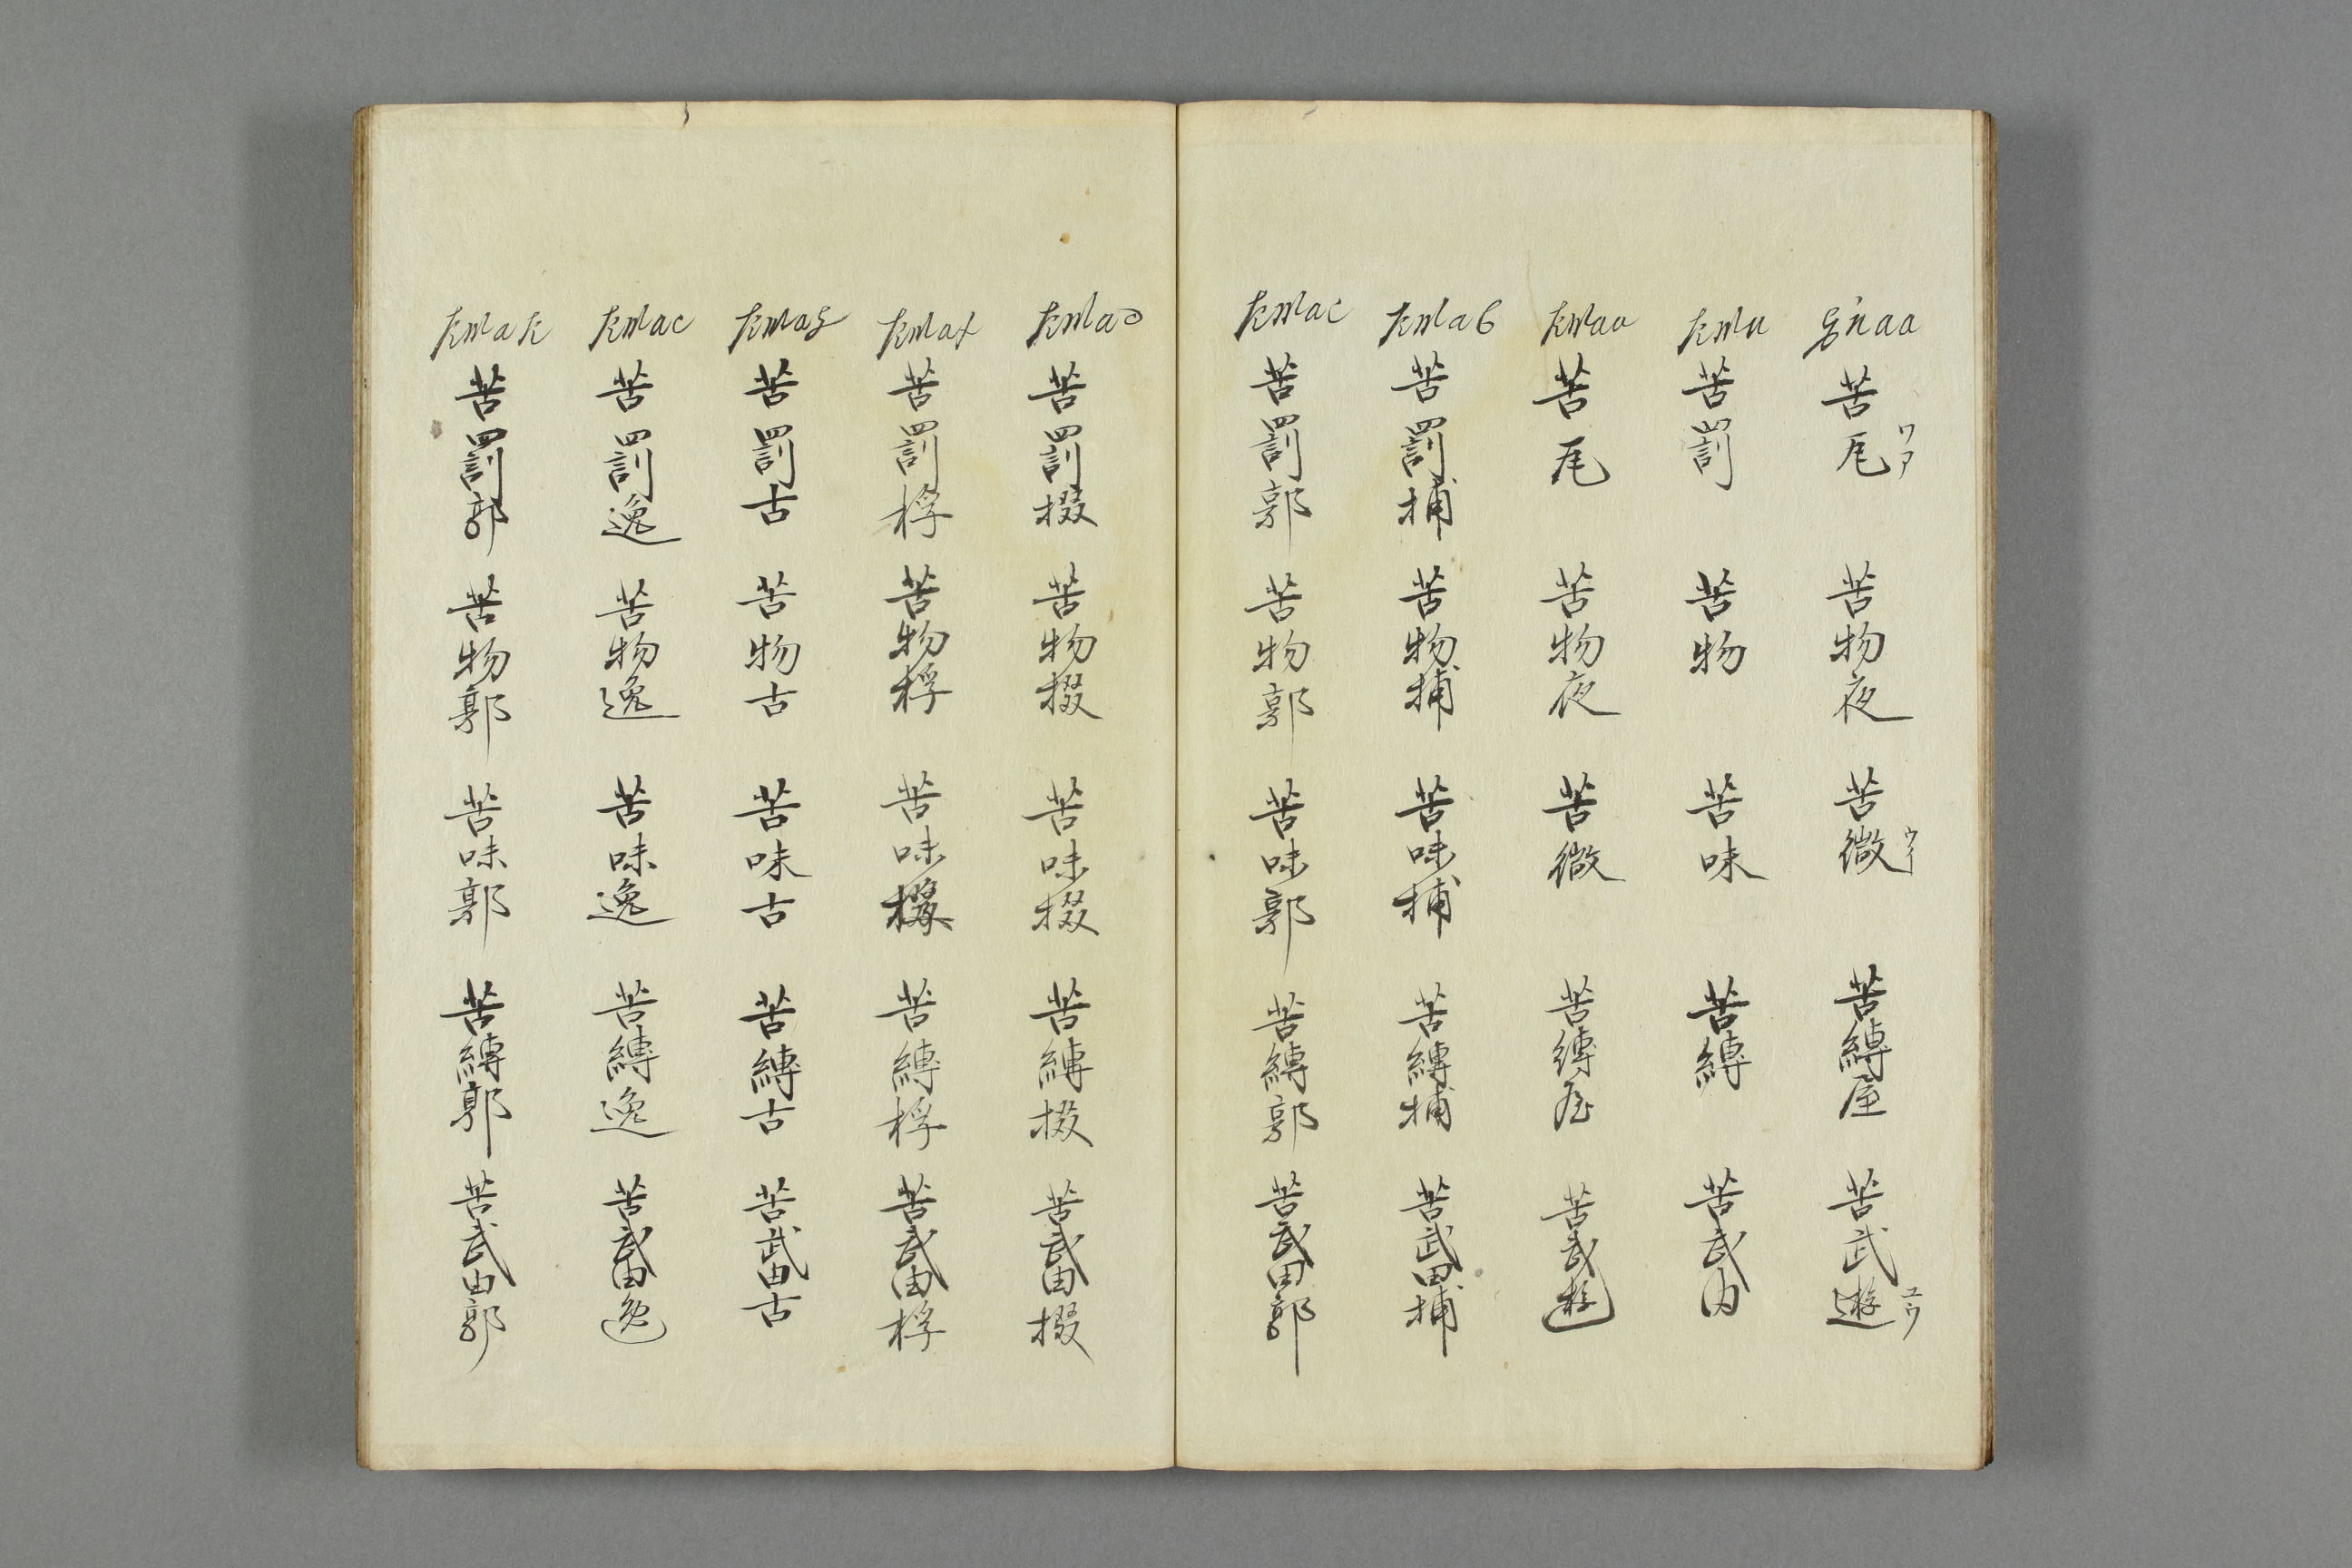 gúaa 苦尾 ワア 苦物夜 苦微 ウイ 苦縛屋 苦武遊 ユウ
kwa 苦罰 苦物 苦味 苦縛 苦武由
kwaa 苦尾 苦物夜 苦微 苦縛屋 苦武遊
kwab 苦罰捕 苦物捕 苦味捕 苦縛捕 苦武由捕
kwac 苦罰郭 苦物郭 苦味郭 苦縛郭 苦武由郭
kwad 苦罰掇 苦物掇 苦味掇 苦縛掇 苦武由掇
kwaf 苦罰桴 苦物桴 苦味 苦縛桴 苦武由桴
kwag 苦罰古 苦物古 苦味古 苦縛古 苦武由古
kwac 苦罰逸 苦物逸 苦味逸 苦縛逸 苦武由逸
kwak 苦罰郭 苦物郭 苦味郭 苦縛郭 苦武由郭